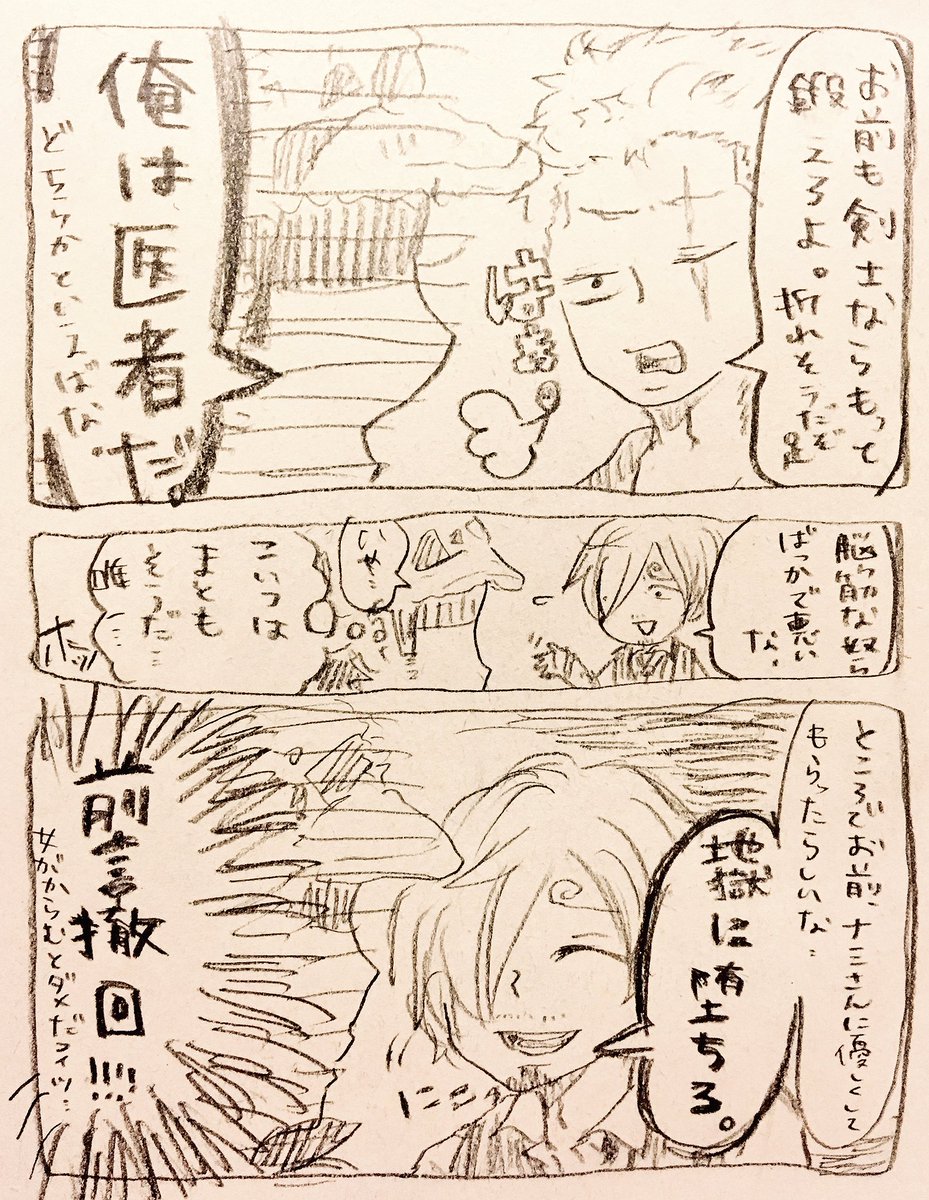 お前も剣士ならもって
鍛えろよ。折れそうだぞ
足
はぁ。
俺は医者だ。
どちらかといえばな
脳筋な奴ら
ばっかで悪い
な。
いや…
こいつは
まとも
そうだ…
唯一…
ホッ
ところでお前、ナミさんに優しくして
もらったらしいな…
地獄に堕ちろ。
ニコッ
前言撤回!!!!
女がからむとダメだコイツ…